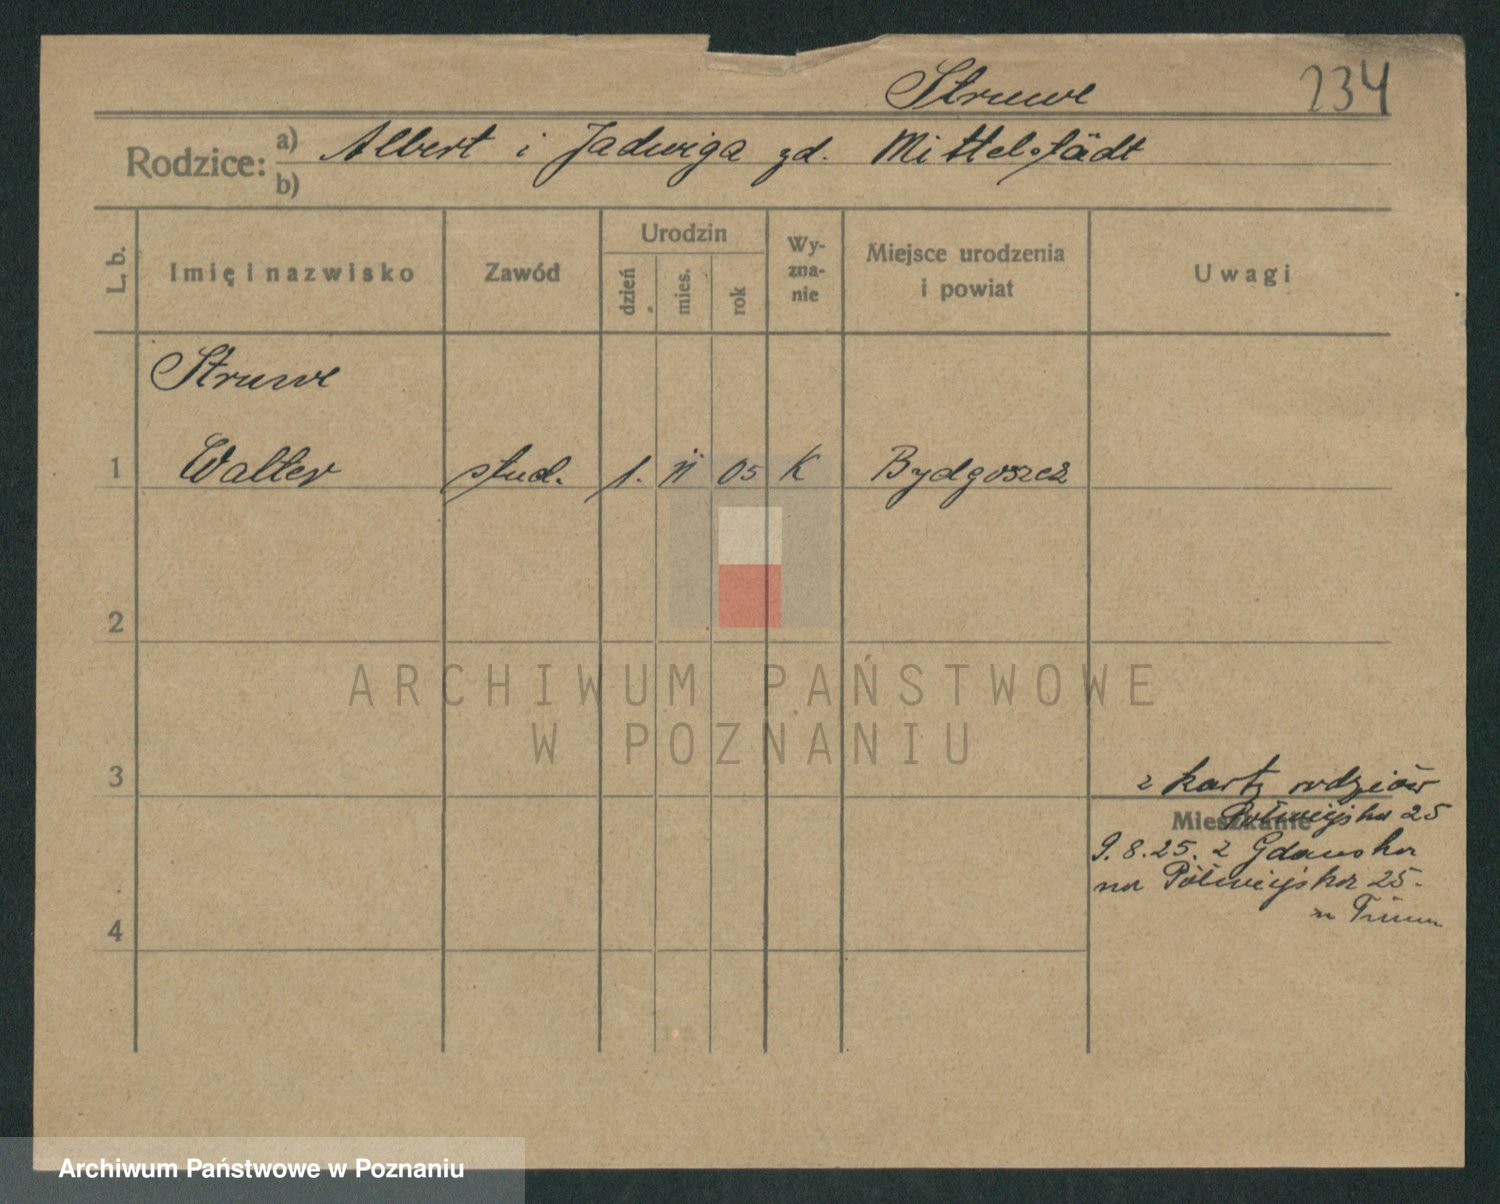 Struwe 234
Rodzice: a) Albert i Jadwiga zd. Mittelstädt
b)
L. b.
Imię i nazwisko
Zawód
Urodzin
dzień
mies.
rok
Wy-
zna-
nie
Miejsce urodzenia
i powiat
Uwagi
Struwe
1 Walter stud. 1. II 05 K Bydgoszcz
2
3
4
z karty rodziców
Mieszkanie
Półwiejska 25
9.8.25. z Gdańska
na Półwiejska 25.
ARCHIWUM PAŃSTWOWE
W POZNANIU
Archiwum Państwowe w Poznaniu